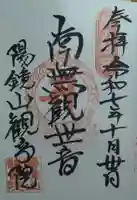 奉拝 令和七年十月卅日
南無観世音
陽鏡山観音院